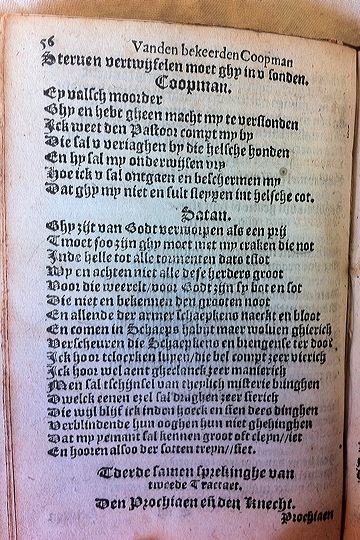 56
Vanden bekeerden Coopman
Steruen vertwijfelen moet ghy in v sonden.
Coopman.
Ey valsch moorder
Ghy en hebt gheen macht my te verslonden
Ick weet den Pastoor compt my by
Die sal v veriaghen by die helsche honden
En hy sal my onderwijsen vry
Hoe ick v sal ontgaen en beschermen my
Dat ghy my niet en sult sleypen int helsche cot.
Satan.
Ghy zijt van Godt verworpen als een prij
Tmoet soo zijn ghy moet met my craken die not
Inde helle tot alle tormenten dats tslot
Wy en achten niet alle dese herders groot
Voor die weerelt/voor Godt zijn sy bot en sot
Die niet en bekennen den grooten noot
En allende der armer schaepkens naeckt en bloot
En comen in Schaeps habijt maer woluen ghierich
Verscheuren die Schaepkens en brengense ter doot
Ick hoor tcloercken luyen/die bel compt zeer vierich
Ick hoor wel aent gheclanck zeer manierich
Men sal tschijnsel van theylich misterie bringhen
Dwelck eenen ezel sal draghen zeer fierich
Die wijl blijf ick inden hoeck en sien dees dinghen
Verblindende hun ooghen hun niet ghehinghen
Dat my yemant sal kennen groot oft cleyn//iet
En hooren alsoo der sotten treyn//siet.
Tderde samen sprekinghe van
tweede Tractaet.
Den Prochiaen eñ den Knecht.
Prochiaen